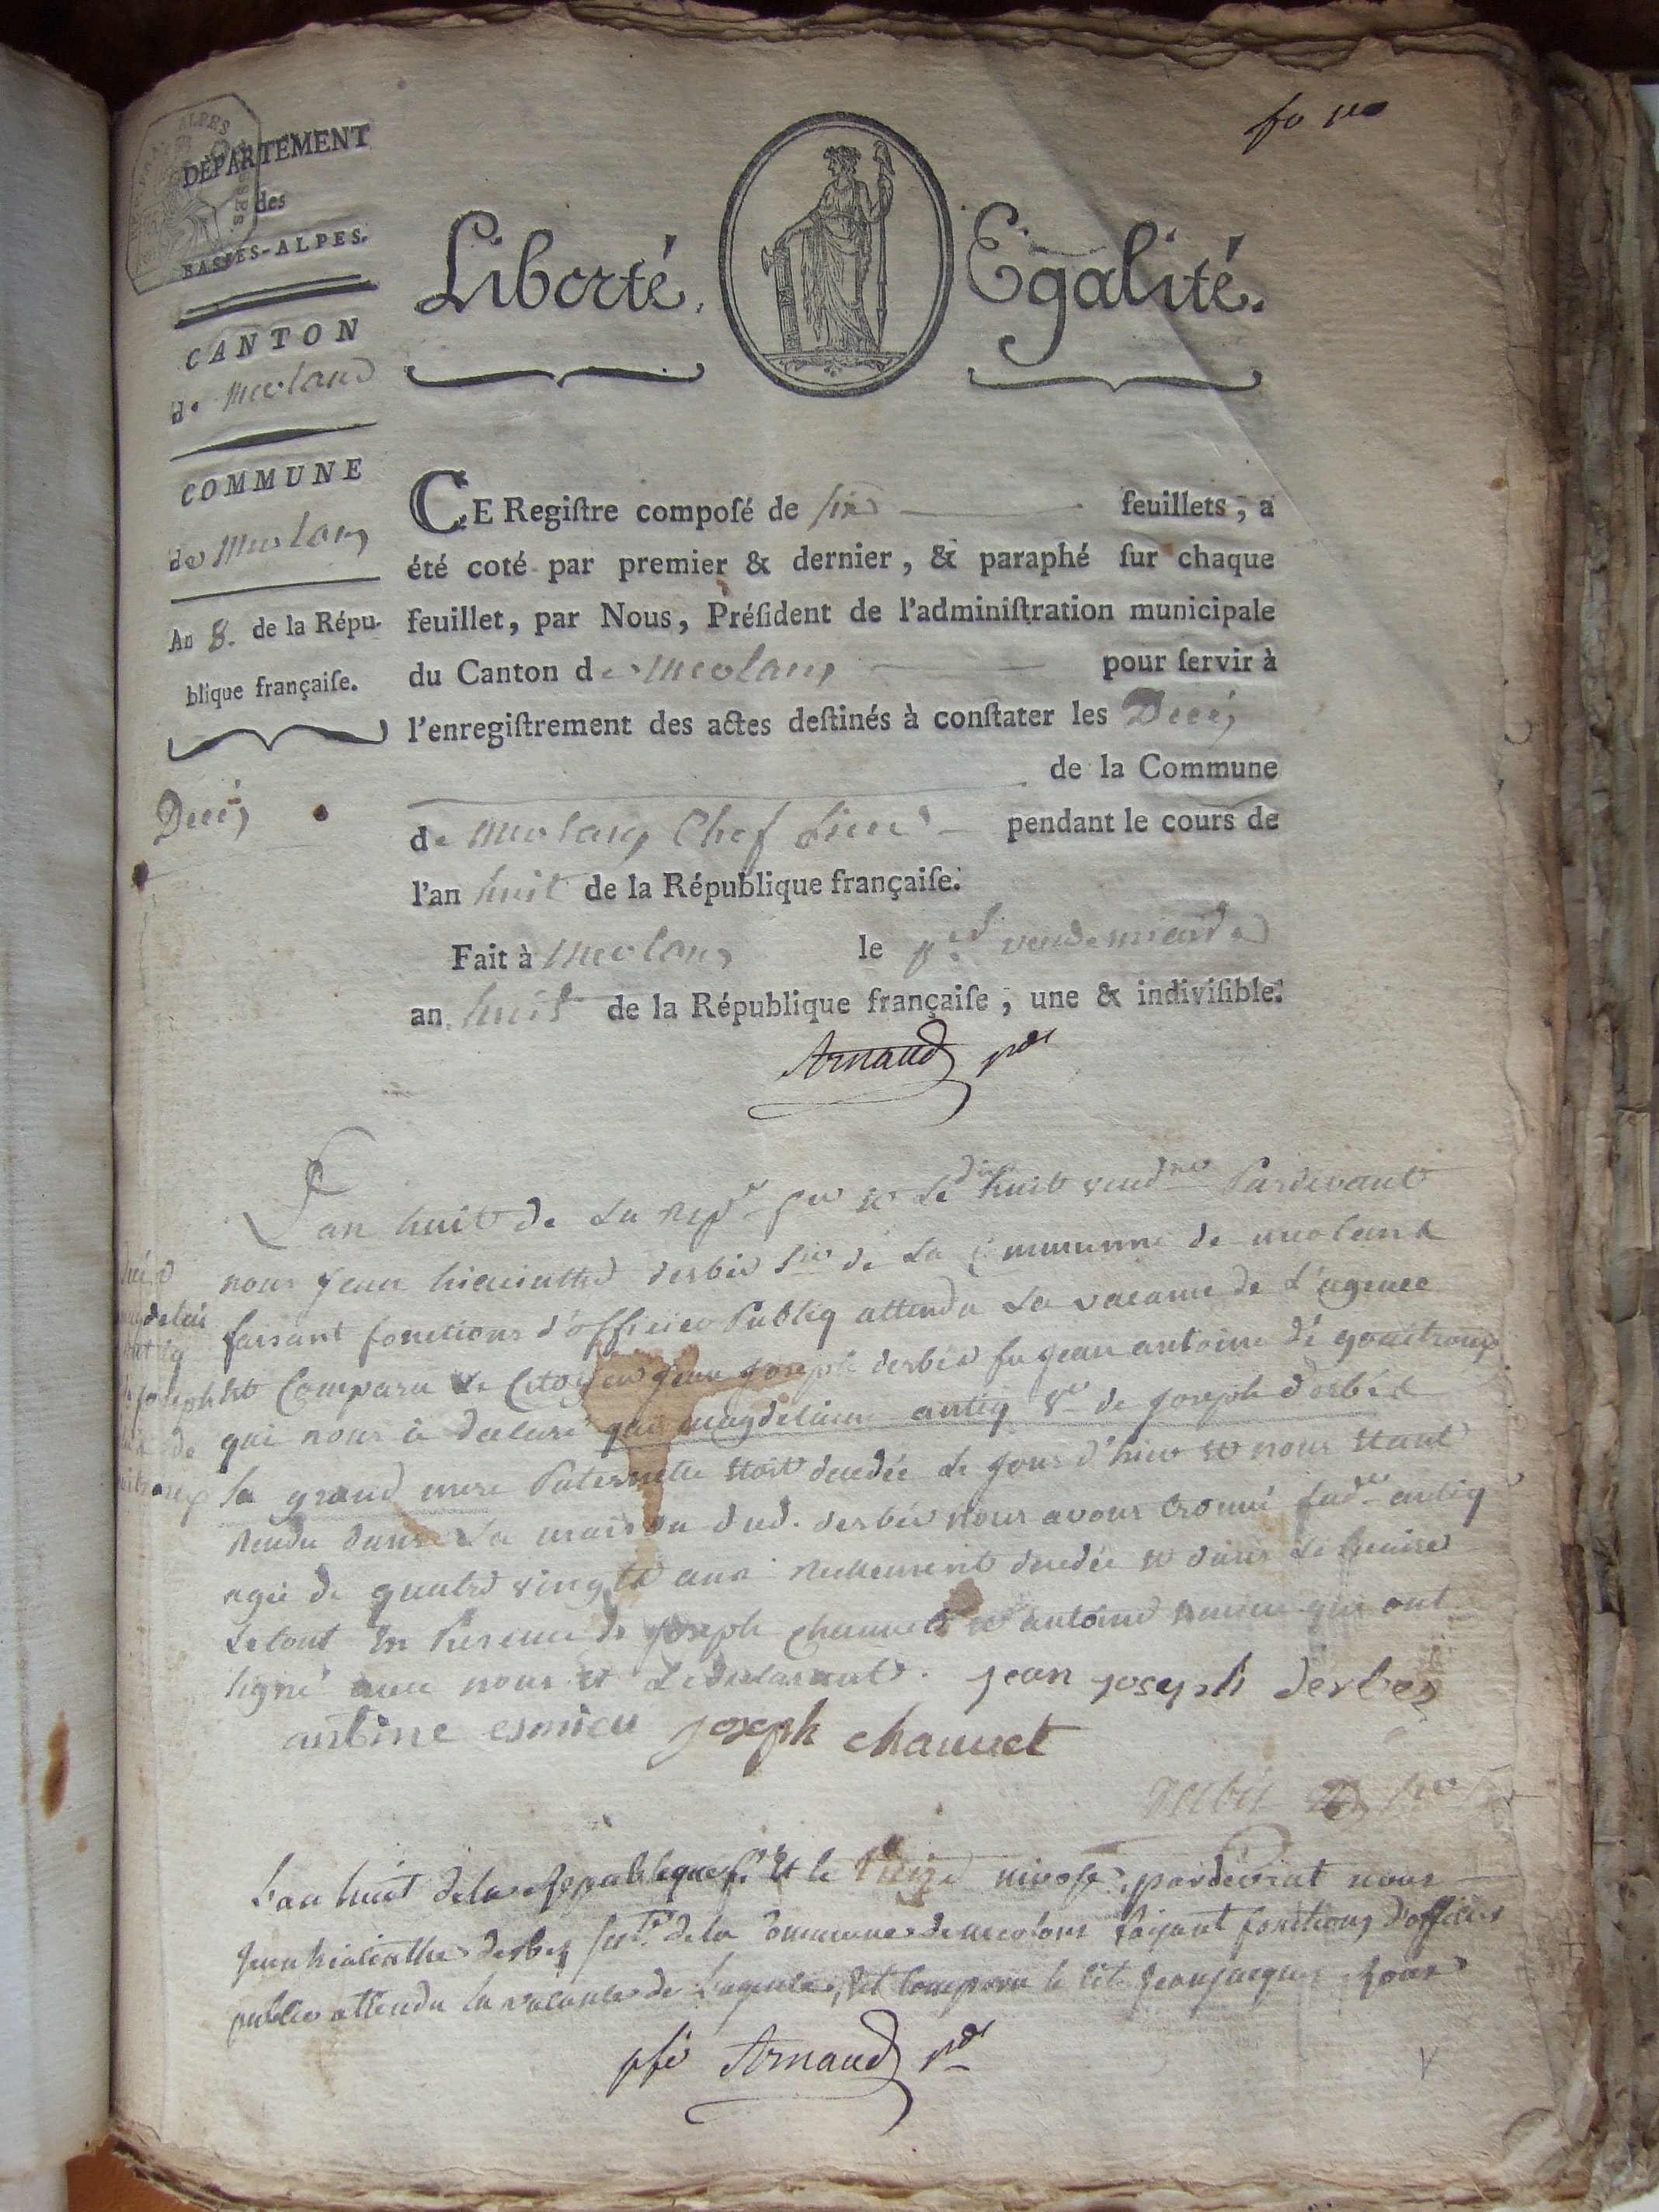 fo 1er
DÉPARTEMENT
des
BASSES-ALPES.
CANTON
de meolans
COMMUNE
de meolans
An 8. de la Répu-
blique françaiſe.
Decés
Liberté, Egalité.
CE Regiſtre compoſé de six feuillets, a
été coté par premier & dernier, & paraphé ſur chaque
feuillet, par Nous, Préſident de l'adminiſtration municipale
du Canton de meolans pour ſervir à
l'enregiſtrement des actes deſtinés à conſtater les Decés
de la Commune
de meolans Chef Lieu pendant le cours de
l'an huit de la République françaiſe.
Fait à meolans le pr vendemiaire
an huit de la République françaiſe, une & indiviſible.
Arnaud pdt
L'an huit de la repe fse et le dix huit vendre Pardevant
nous Jean hiacinthe derbés sre de la Commune de meolans
faisant fonctions d'officier Publiq attendu la vacance de L'agence
est Comparu le Citoyen Jean Joseph derbés fu Jean antoine de goutroux
qui nous a declaré que magdeleine antiq ve de Joseph derbés
sa grand mere Paternelle étoit decedée le jour d'hier et nous étant
rendu dans la maison dud. derbés nous avons trouvé lade antiq
agée de quatre vingts ans decedée et dans
le tout en presence de joseph chauvet et antoine qui ont
signé avec nous et le declarant. jean joseph derbes
antine esmieu joseph chauvet
derbés sre
L'an huit de la republique fse et le treize nivose, pardevant nous
Jean hiacinthe derbes sre de la commune de meolans faisant fonctions d'officier
public attendu la vacance de l'agence, est comparu le cit. Jean jacques
pfé Arnaud pdt